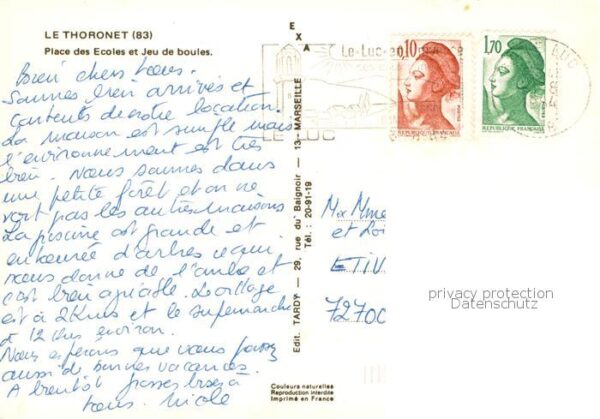 LE THORONET (83)
Place des Ecoles et Jeu de boules.
Bien chers tous.
Sommes bien arrivés et
contents de notre location.
La maison est simple mais
l'environnement est très
bien. Nous sommes dans
une petite forêt et on ne
voit pas les autres maisons
La piscine est grande et
entourée d'arbres ce qui
nous donne de l'ombre et
c'est bien agréable. Le village
est à 2 Kms et le supermarché
à 12 kms environ.
Nous espérons que vous passez
aussi de bonnes vacances.
A bientôt grosses bises à
tous. Nicole
EXA
Edit. TARDY — 29, rue du Baignoir — 13 - MARSEILLE
Tél. : 20-91-19
Couleurs naturelles
Reproduction interdite
Imprimé en France
Le Luc en
LE LUC
0,10
REPUBLIQUE FRANÇAISE
1,70
REPUBLIQUE FRANÇAISE
LUC
Mr Mme
et Loi
ETIV
72700
privacy protection
Datenschutz